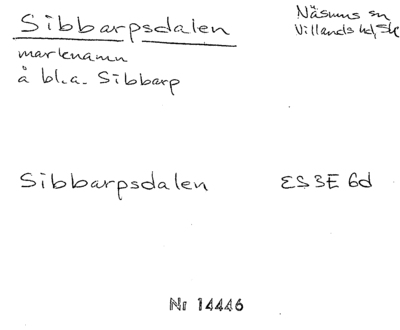 Sibbarpsdalen
Näsums sn
Villands hd, Sk
marknamn
å bl.a. Sibbarp
Sibbarpsdalen ES 3E 6d
Nr 14446